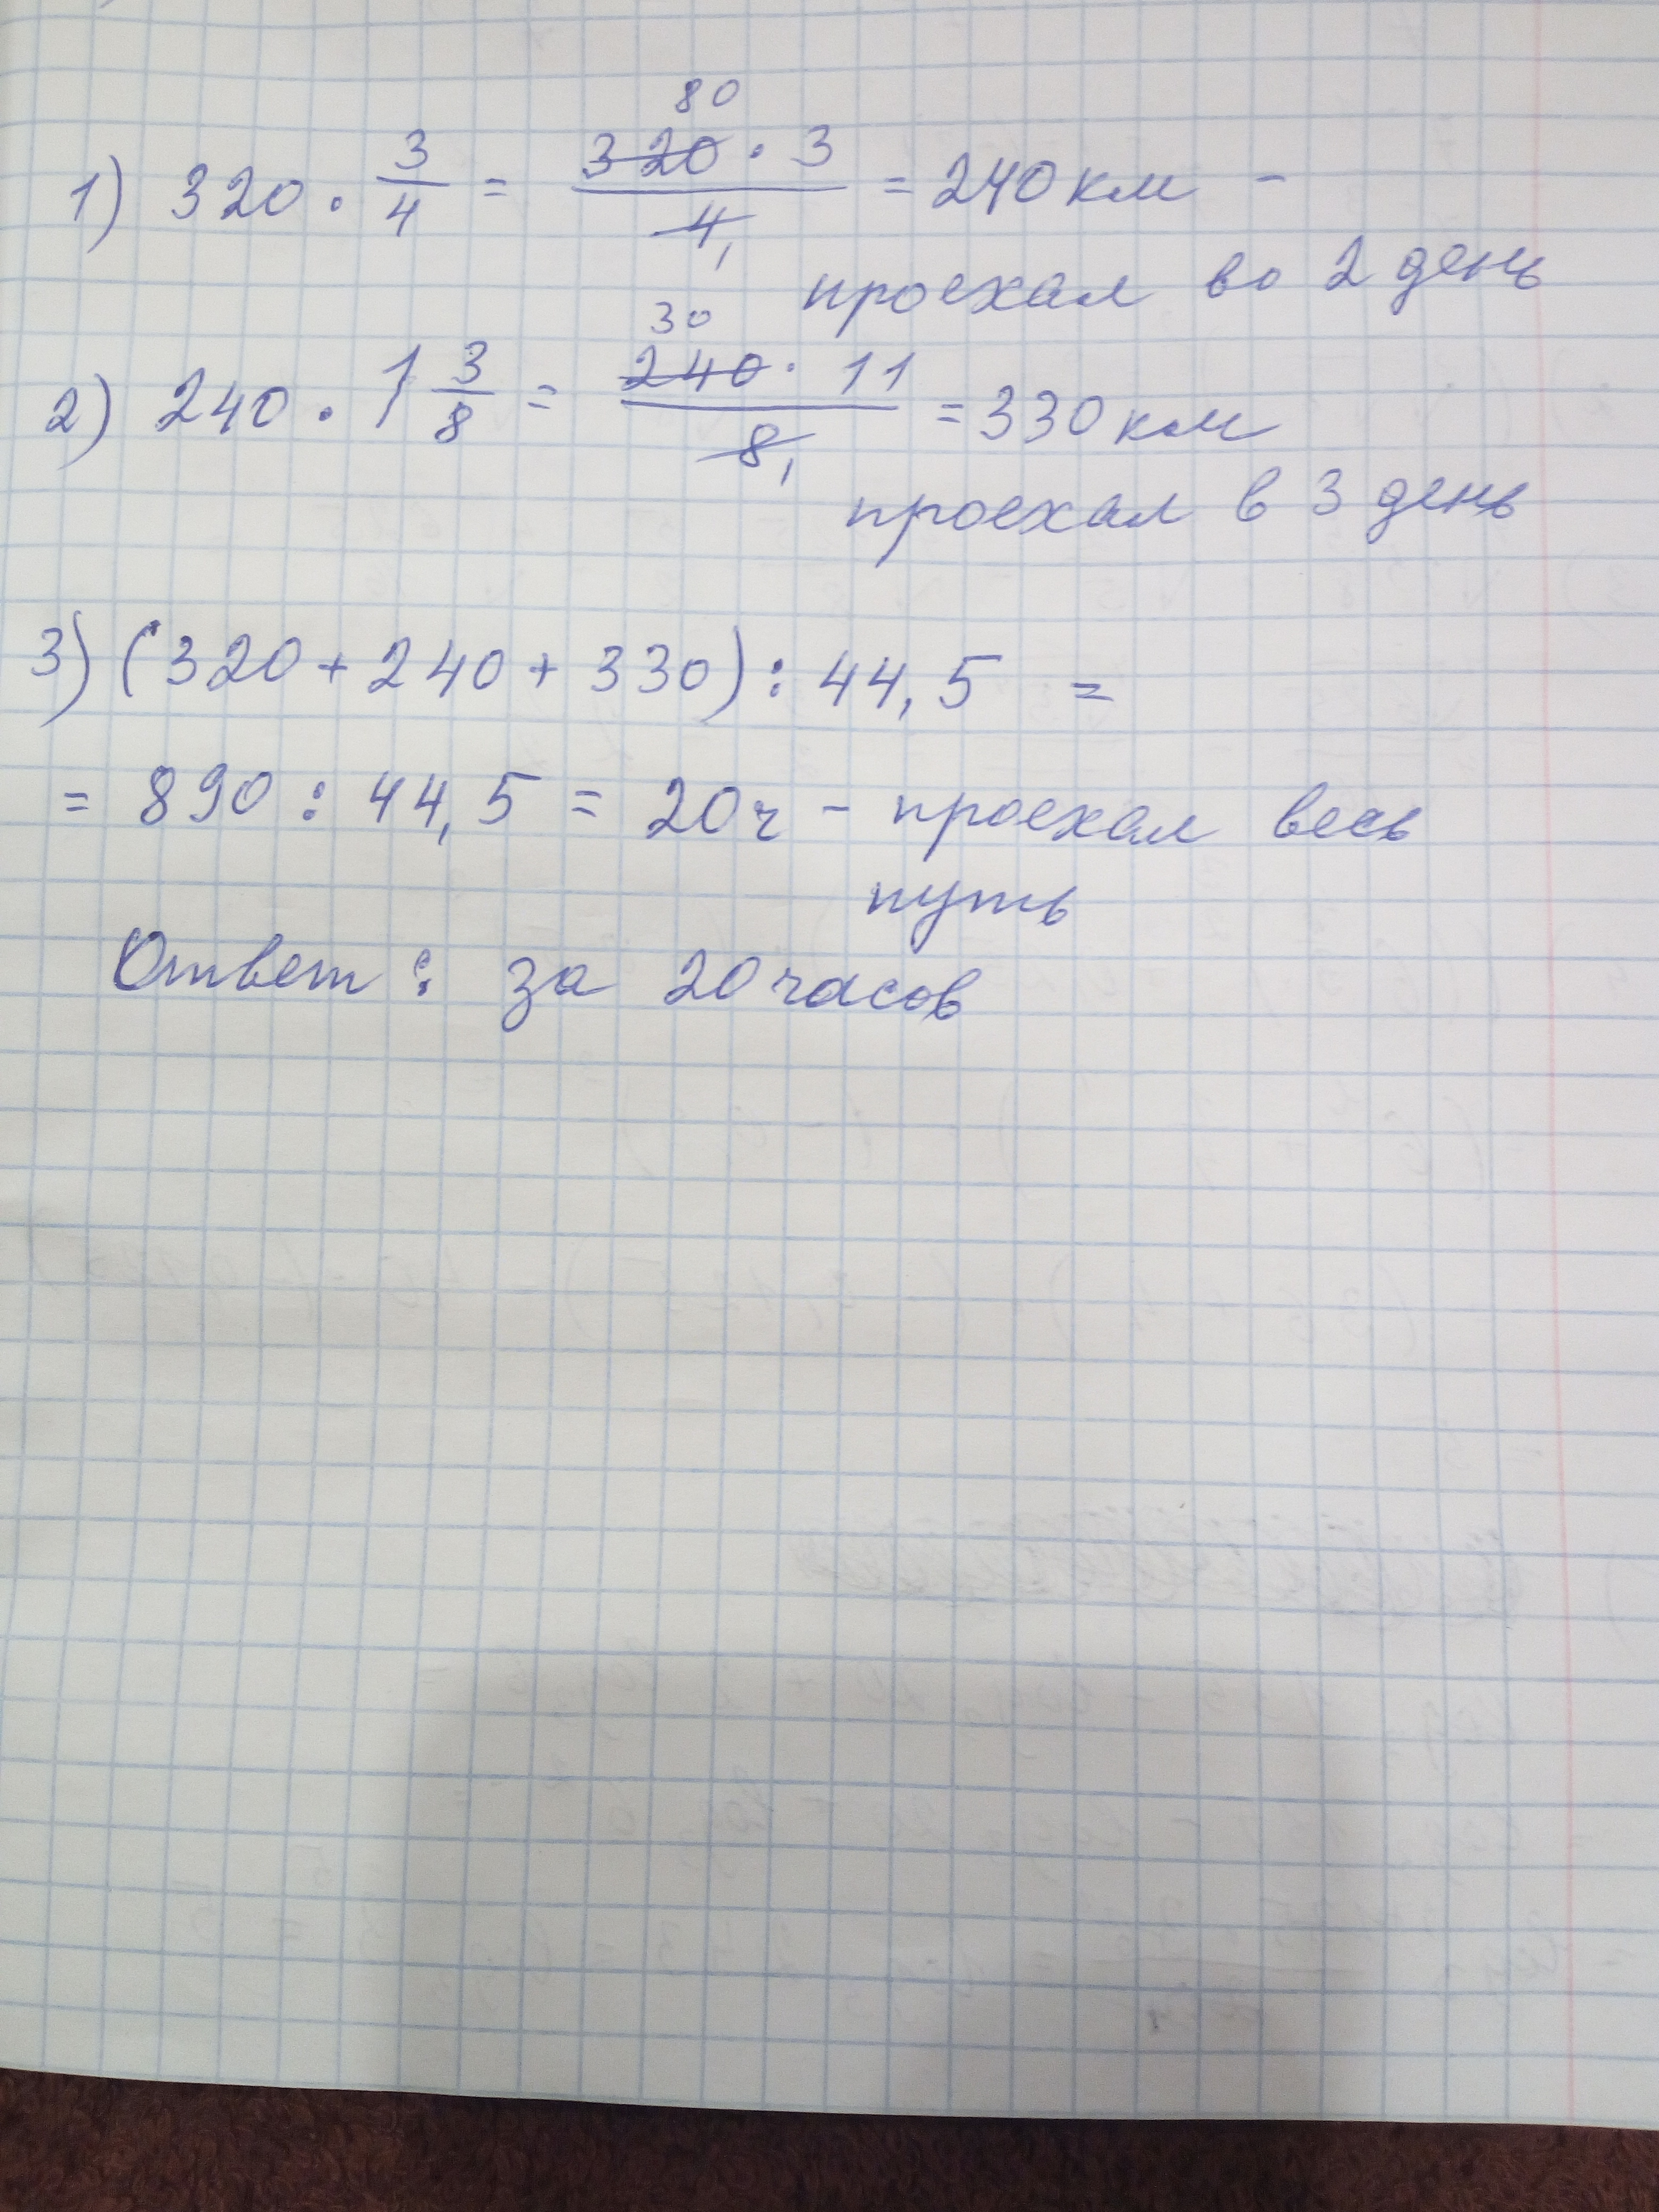 1) 320 · 3/4 = 320 · 3 / 4 = 240 км -
80
1
проехал во 2 день
2) 240 · 1 3/8 = 240 · 11 / 8 = 330 км
30
1
проехал в 3 день
3) (320 + 240 + 330) : 44,5 =
= 890 : 44,5 = 20ч - проехал весь
путь
Ответ: за 20 часов